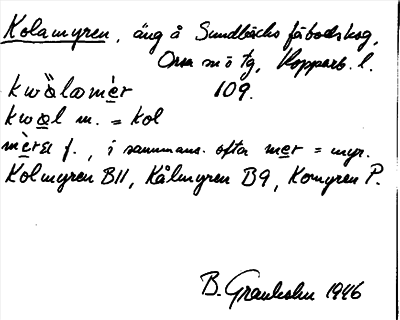 Kolamyren, äng å Sundbäcks fäbodskog,
Orsa sn ö tg, Kopparb. l.
kwäl​æmèr 109.
kwæl m. = kol
mèrɛı f., i sammans. ofta mer = myr.
Kolmyren B11, Kålmyren B9, Komyren P.
B. Granholm 1946